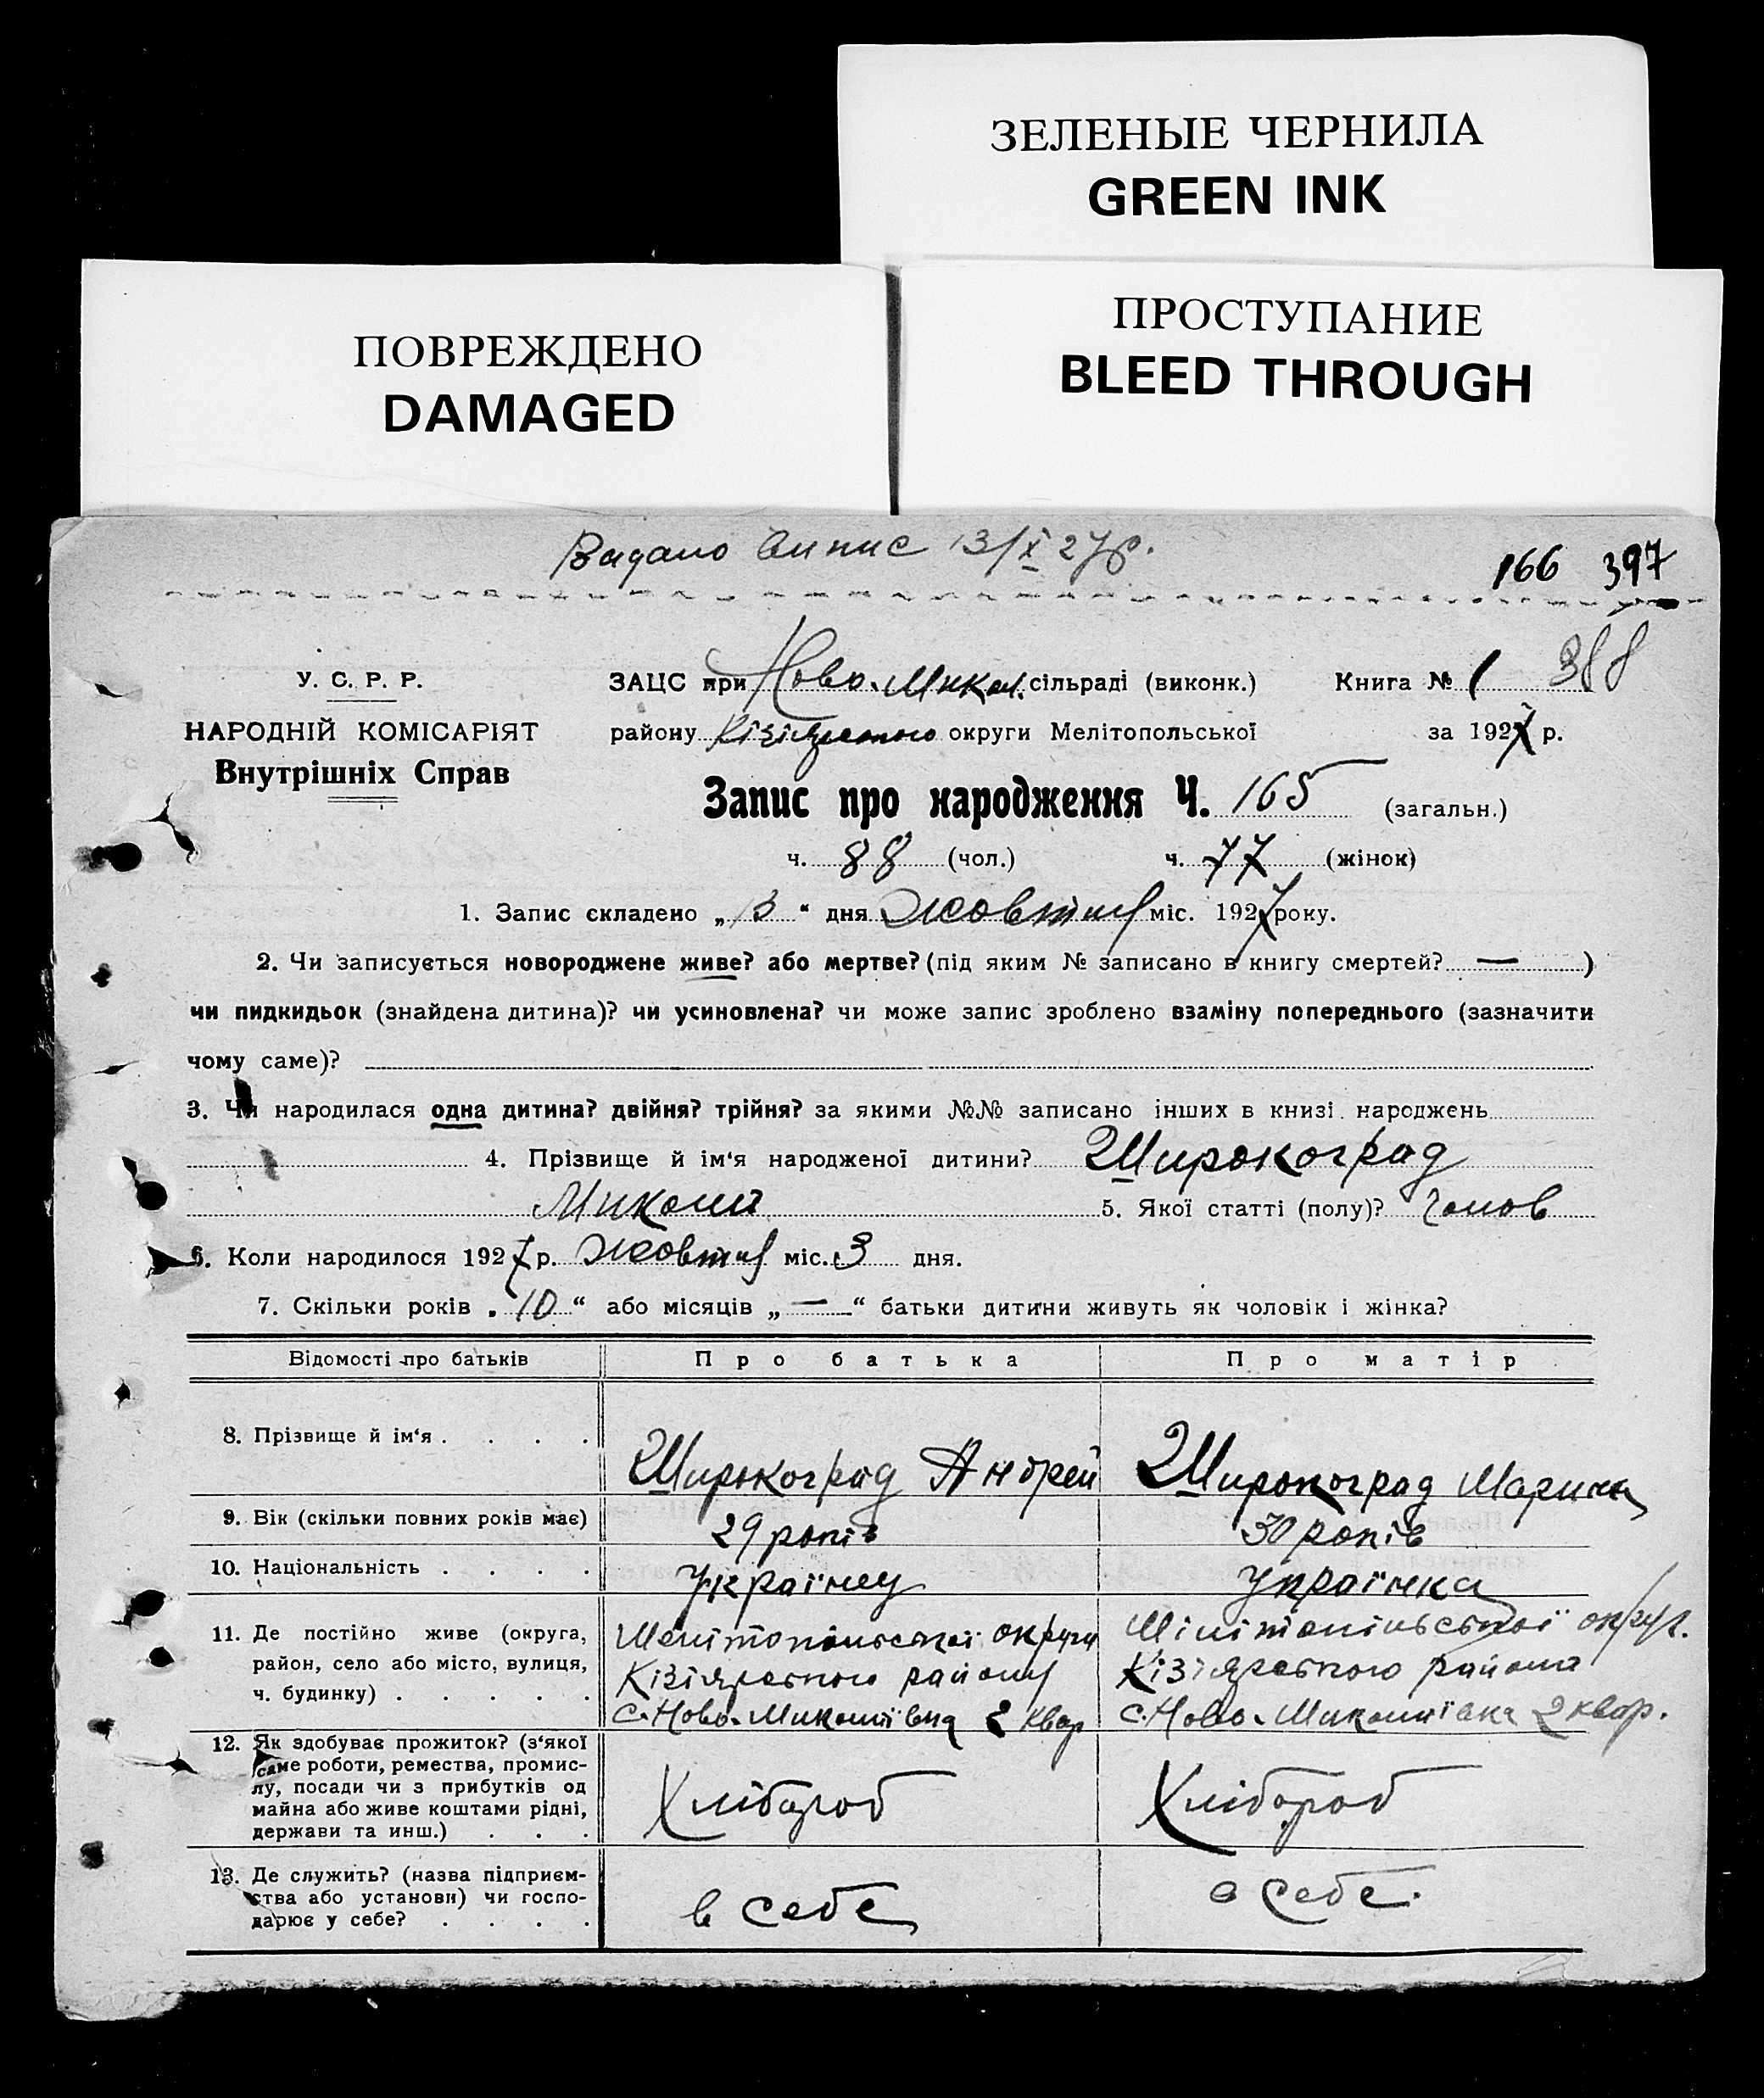 ЗЕЛЕНЫЕ ЧЕРНИЛА
GREEN INK
ПОВРЕЖДЕНО
DAMAGED
ПРОСТУПАНИЕ
BLEED THROUGH
Видано випис 13/X 27р.
166 397
388
У. С. Р. Р.
ЗАЦС при Ново-Микол. сільраді (виконк.) Книга № 1
НАРОДНІЙ КОМІСАРІЯТ
району Кізіярського округи Мелітопольської за 1927 р.
Внутрішніх Справ
Запис про народження Ч. 165 (загальн.)
ч. 88 (чол.) ч. 77 (жінок)
1. Запис складено „13“ дня Жовтня міс. 1927 року.
2. Чи записується новороджене живе? або мертве? (під яким № записано в книгу смертей? — )
чи пидкидьок (знайдена дитина)? чи усиновлена? чи може запис зроблено взаміну попереднього (зазначити
чому саме)?
3. Чи народилася одна дитина? двійня? трійня? за якими №№ записано інших в книзі народжень
4. Прізвище й ім‘я народженої дитини? Широкоград
Миколай 5. Якої статті (полу)? чолов
6. Коли народилося 1927 р. Жовтня міс. 3 дня.
7. Скільки років „10“ або місяців „—“ батьки дитини живуть як чоловік і жінка?
Відомості про батьків Про батька Про матір
8. Прізвище й ім‘я . . . . Широкоград Андрей Широкоград Марина
9. Вік (скільки повних років має) 29 років 30 років
10. Національність . . . . Українец Українка
11. Де постійно живе (округа, район, село або місто, вулиця, ч. будинку) . . . . .
Мелітопільської округи
Кізіярского району
с. Ново-Миколаївка 2 квар
Мілітопільської округ.
Кізіярского района
с. Ново-Миколаївка 2 квар.
12. Як здобуває прожиток? (з‘якої
саме роботи, ремества, промис-
лу, посади чи з прибутків од
майна або живе коштами рідні,
держави та инш.) . . .
Хлібороб Хлібороб
13. Де служить? (назва підприєм-
ства або установи) чи госпо-
дарює у себе? . . . .
в себе в себе.